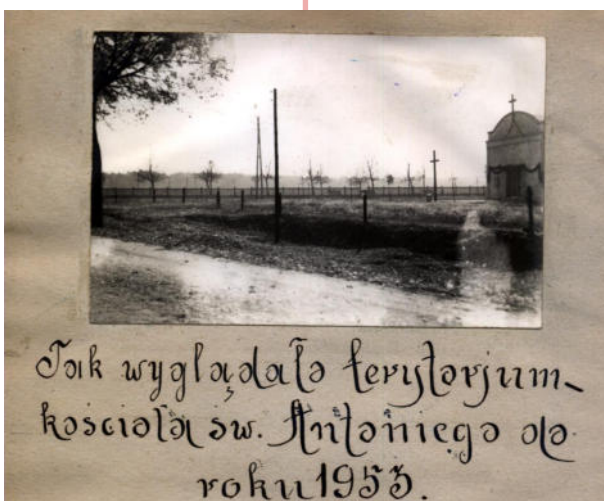 Tak wyglądało terytorjum
kościoła św. Antoniego do
roku 1953.